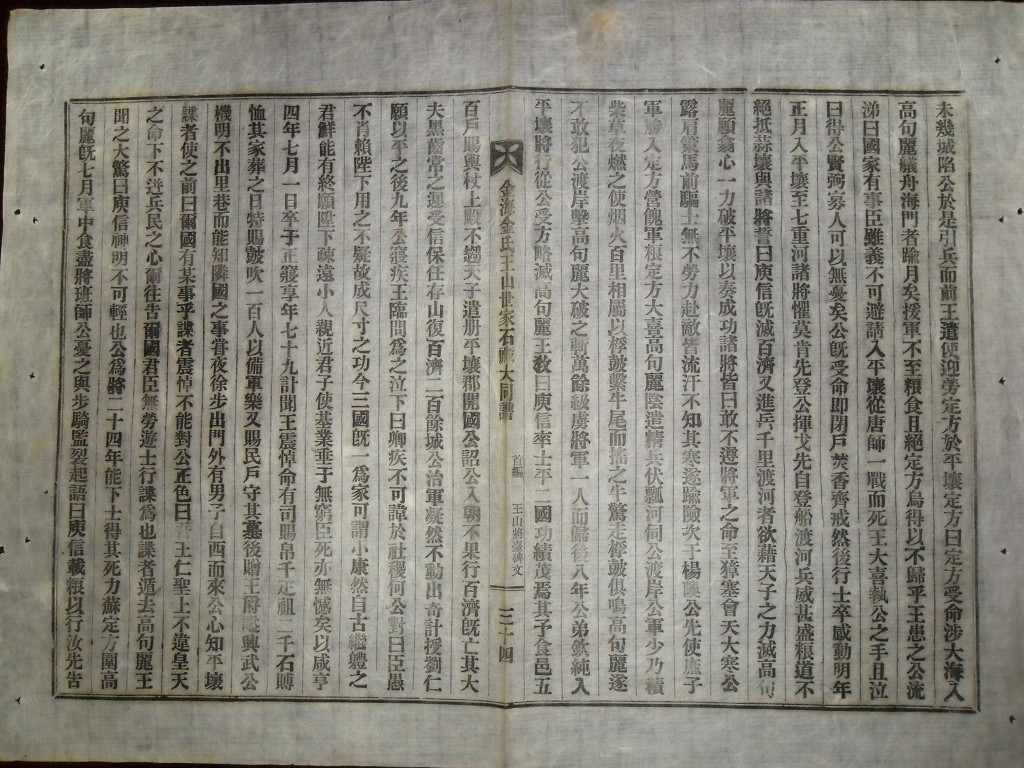 未幾城陷公於是引兵而前王遣使迎勞定方於平壤定方曰定方受命涉大海入
高句麗艤舟海門者踰月矣援軍不至粮食且絕定方烏得以不歸乎王患之公流
涕曰國家有事臣雖義不可避請入平壤從唐師一戰而死王大喜執公之手且泣
曰得公賢弼寡人可以無憂矣公旣受命卽閉戶焚香齊戒然後行士卒感動明年
正月入平壤至七重河諸將懼莫肯先登公揮戈先自登船渡河兵威甚盛粮道不
絕抵蒜壤與諸將誓曰庾信旣滅百濟又進兵千里渡河者欲藉天子之力滅高句
麗願翕心一力破平壤以奏成功諸將皆曰敢不遵將軍之命至獐塞會天大寒公
露肩策馬前驅士無不勞力赴敵皆流汗不知其寒遂踰險次于楊隩公先使庶子
軍勝入定方營餽軍粮定方大喜高句麗陰遣精兵伏瓢河伺公渡岸公軍少乃積
柴草夜燃之使烟火百里相屬以桴皷繫牛尾而撞之牛驚走桴皷俱鳴高句麗遂
不敢犯公渡岸擊高句麗大破之斬萬餘級虜將軍一人而歸後八年公弟欽純入
平壤將行從公受方略滅高句麗王敎曰庾信率士平二國功績茂焉其予食邑五
金海金氏王山世家石禮大同譜
首編 王山將臺碑文 三十四
百戶賜輿杖上殿不趨天子遣册平壤郡開國公詔公入朝不果行百濟旣亡其大
夫黑齒常之迎受信保任存山復百濟二百餘城公治軍凝然不動出奇計授劉仁
願以平之後九年公寢疾王臨問爲之泣下曰卿疾不可諱於社稷何公對曰臣愚
不肖賴陛下用之不疑故成尺寸之功今三國旣一爲家可謂小康然自古繼軆之
君鮮能有終願陛下疎遠小人親近君子使基業垂于無窮臣死亦無憾矣以咸亨
四年七月一日卒于正寢享年七十九訃聞王震悼命有司賜帛千疋租二千石賻
恤其家葬之日特賜皷吹一百人以備軍樂又賜民戶守其墓後贈王爵諡興武公
機明不出里巷而能知隣國之事嘗夜徐步出門外有男子自西而來公心知平壤
諜者使之前曰爾國有某事乎諜者震悼不能對公正色曰吾王仁聖上不違皇天
之命下不迕兵民之心爾往告爾國君臣無勞遊士行諜爲也諜者遁去高句麗王
聞之大驚曰庾信神明不可輕也公爲將二十四年能下士得其死力蘇定方圍高
句麗旣七月軍中食盡將班師公憂之與步騎監裂起語曰庾信載粮以行汝先告